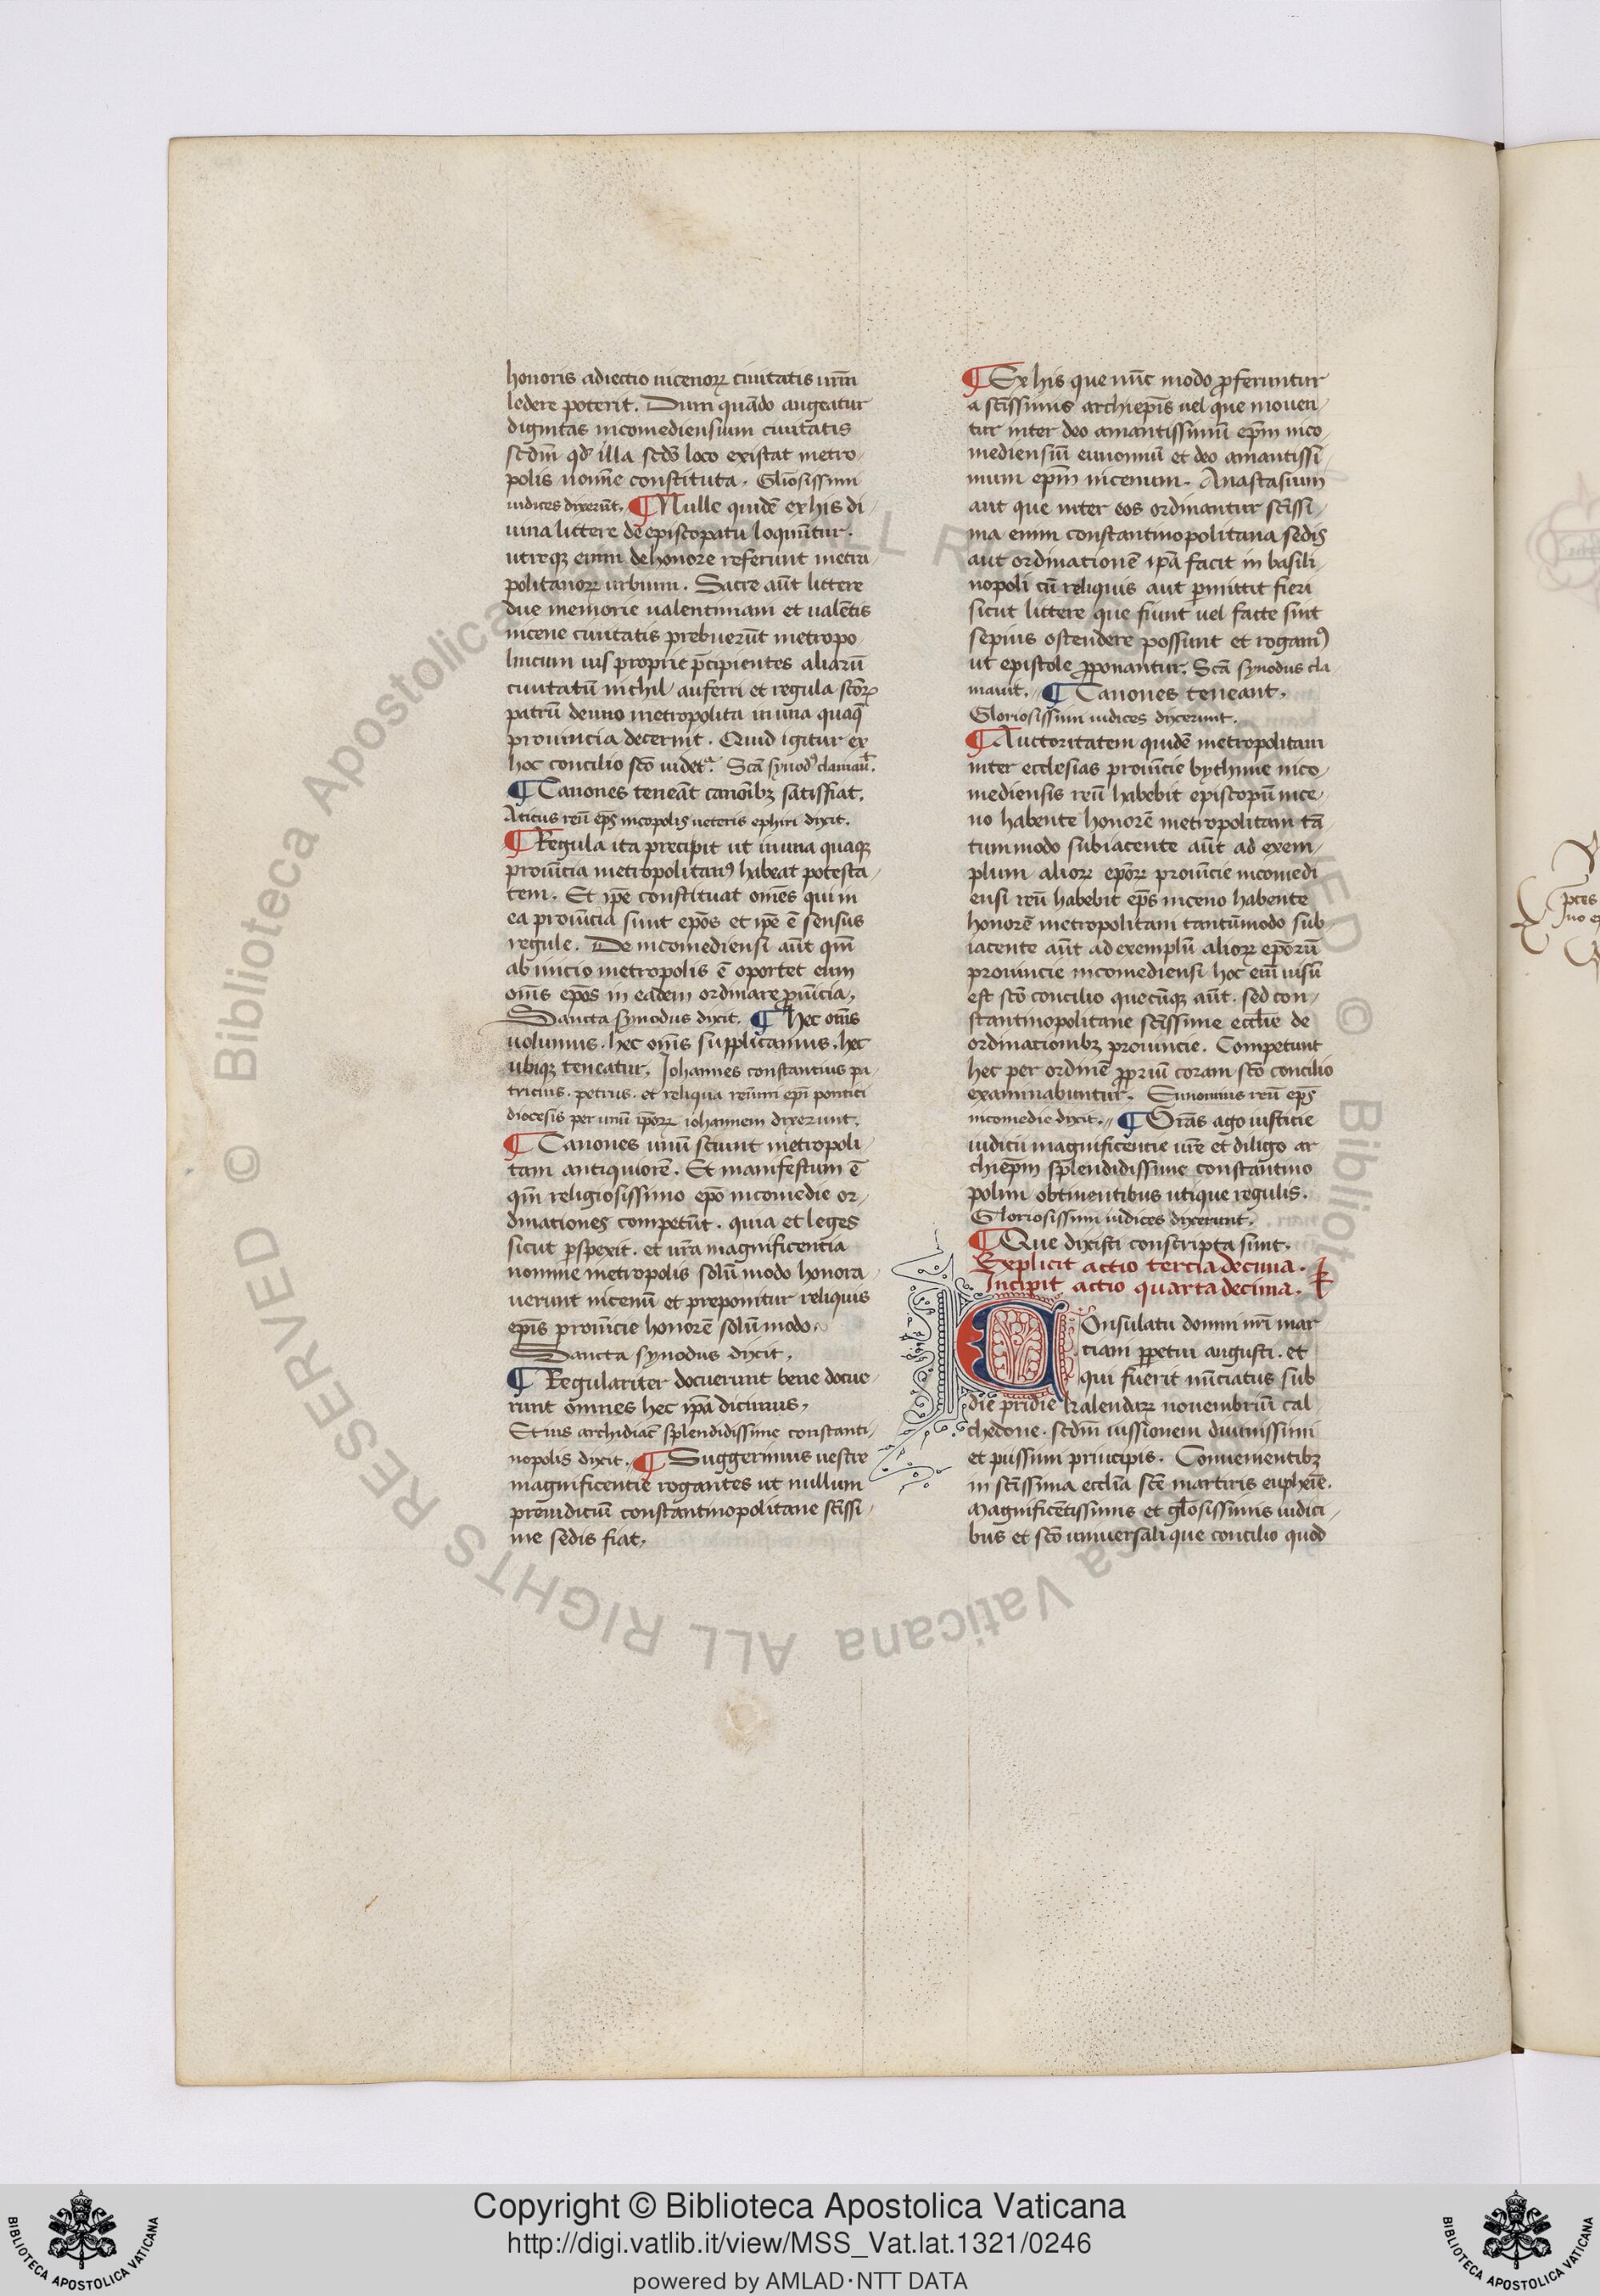 honoris adiectio nicenorꝝ ciuitatis nrm̄
ledere poterit. Dum quādo augeatur
dignitas nicomediensium ciuitatis
scdm̄ qd illa scds loco existat metro-
polis nomīe constituta. Gliosissimi
iudices dixerūt. ¶ Nulle quidē ex his di-
uina littere de episcopatu loquūtur.
utreqꝫ enim de honore referunt metra-
politanorꝝ urbium. Sacre aūt littere
due memorie ualentiniani et ualētis
nicene ciuitatis prebuerūt metropo
liticum ius proprie p̄cipientes aliarū
ciuitatū nichil auferri et regula scōrꝝ
patrū de uno metropolita in una quaqꝫ
prouincia decernit. Quid igitur ex
hoc concilio scō uidetᷣ. Scā synodꝰ clamauit.
¶ Canones teneāt canoībꝫ satisfiat.
Aticus reū ep̄s nicopolis ueteris ephiri dixit.
¶ Regula ita precipit ut in una quaqꝫ
prouīcia metropolitanꝰ habeat potesta-
tem. Et ip̄e constituat om̄es qui in
ea prouīcia sunt ep̄os et ip̄e ē sensus
regule. De nicomediensi aūt qm̄
ab inicio metropolis ē oportet eum
om̄s ep̄os in eadem ordinare ꝓuīcia.
Sancta synodus dixit. ¶ Hec om̄s
uolumus. hec om̄s supplicamus. hec
ubiqꝫ teneatur. Johannes constantius pa-
tricius. petrus. et reliqua reūmi ep̄i pontici
diocesis per unū ip̄orꝝ iohannem dixerunt.
¶ Canones unū sciunt metropoli-
tam antiquiorē. Et manifestum ē
qm̄ religiosissimo ep̄o nicomedie or-
dinationes competūt. quia et leges
sicut ꝑspexit. et ur̄a magnificentia
nomine metropolis solū modo honora-
uerunt nicenū et preponitur reliquis
ep̄is prouīcie honorē solū modo.
Sancta synodus dixit.
¶ Regulariter docuerunt bene docue-
runt omnes hec ip̄a dicimus.
Etius archidiac̄ splendidissime constanti-
nopolis dixit. ¶ Suggerimus uestre
magnificentie rogantes ut nullum
preiudiciū constantinopolitane sc̄issi-
me sedis fiat.
¶ Ex his que nūc modo ꝓferuntur
a sc̄issimis archiep̄is uel que mouen-
tur inter deo amantissimū ep̄m nico-
mediensiū eunomiū et deo amantissi-
mum ep̄m nicenum. Anastasium
aut que inter eos ordinantur sc̄issi-
ma enim constantinopolitana sedis
aut ordinationē ip̄a facit in basili-
nopoli cū reliquis aut ꝑmittit fieri
sicut littere que fiunt uel facte sunt
sepius ostendere possunt et rogamꝰ
ut epistole ꝓponantur. Scā synodus cla
mauit. ¶ Canones teneant.
Gloriosissimi iudices dixerunt.
¶ Auctoritatem quidē metropolitani
inter ecclesias prouīcie bythinie nico-
mediensis reū habebit episcopū nice-
no habente honorē metropolitani tā-
tummodo subiacente aūt ad exem-
plum aliorꝝ ep̄orꝝ prouīcie nicomedi
ensi reū habebit ep̄s niceno habente
honorē metropolitani tantūmodo sub-
iacente aūt ad exemplū aliorꝝ ep̄orū
prouincie nicomediensi hoc eīm uisū
est scō concilio quecūqꝫ aūt. sed con-
stantinopolitane sc̄issime eccl̄ie de
ordinationibꝫ prouincie. Competunt
hec per ordinē ꝓpriū coram scō concilio
examinabuntur. Eunomius reū ep̄s
nicomedie dixit. ¶ Grās ago iusticie
iudicii magnificentie ur̄e et diligo ar
chiep̄m splendidissime constantino
polim obtinentibus utique regulis.
Gloriosissimi iudices dixerunt.
¶ Que dixisti conscripta sunt.
Explicit actio tercia decima.
Incipit actio quarta decima.
Consulatu domni nr̄i mar
ciani ꝑpetui augusti. et
qui fuerit nūciatus sub
die pridie kalendarꝝ nouembriū cal
chedone. scdm̄ iussionem diuinissimi
et piissimi principis. Conuenientibꝫ
in sc̄issima eccl̄ia sc̄e martiris euphēie.
Magnificētissimis et gl̄osissimis iudici-
bus et scō uniuersali que concilio quod
© Biblioteca Apostolica Vaticana ALL RIGHTS RESERVED
Copyright © Biblioteca Apostolica Vaticana
http://digi.vatlib.it/view/MSS_Vat.lat.1321/0246
powered by AMLAD·NTT DATA
BIBLIOTECA APOSTOLICA VATICANA
BIBLIOTECA APOSTOLICA VATICANA